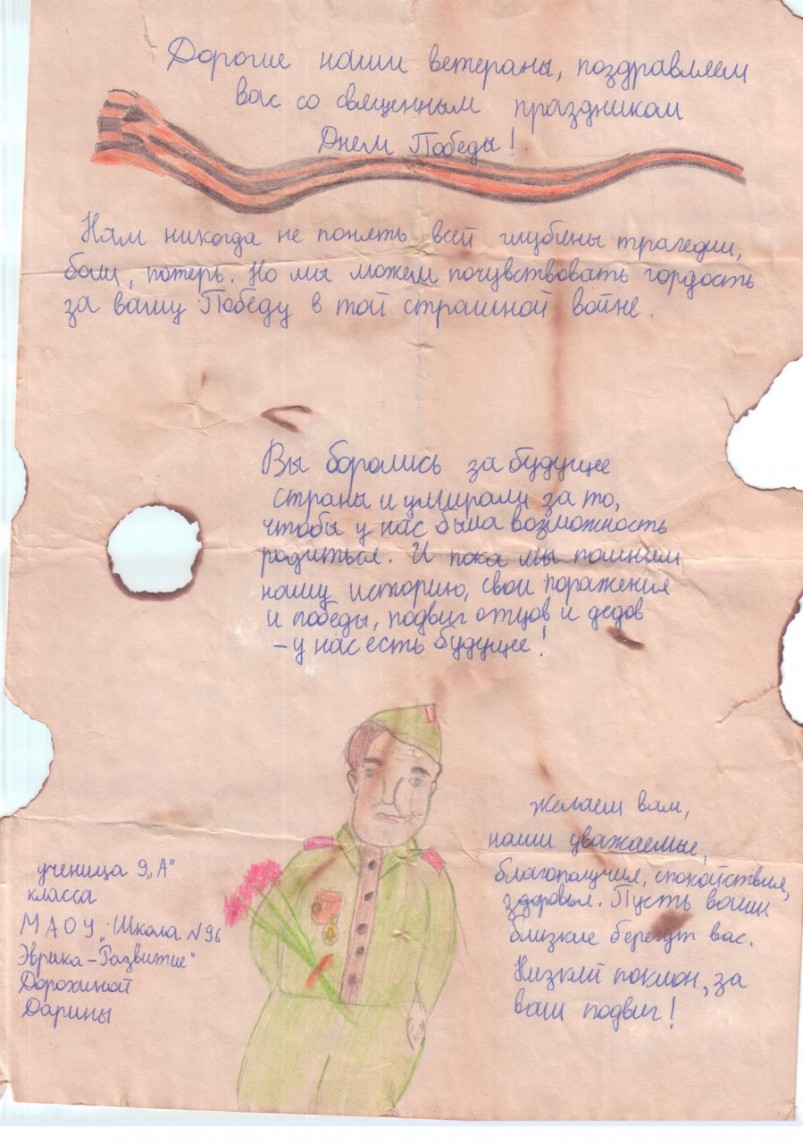 Дорогие наши ветераны, поздравляем
вас со священным праздником
Днем Победы!
Нам никогда не понять всей глубины трагедии,
боли, потерь. Но мы можем почувствовать гордость
за вашу Победу в той страшной войне.
Вы боролись за будущее
страны и умирали за то,
чтобы у нас была возможность
родиться. И пока мы помним
нашу историю, свои поражения
и победы, подвиг отцов и дедов
- у нас есть будущее!
Желаем вам,
наши уважаемые,
благополучия, спокойствия,
здоровья. Пусть ваши
близкие берегут вас.
Низкий поклон, за
ваш подвиг!
ученица 9 „А"
класса
МАОУ „Школа N96
Эврика-Развитие"
Дорохиной
Дарины